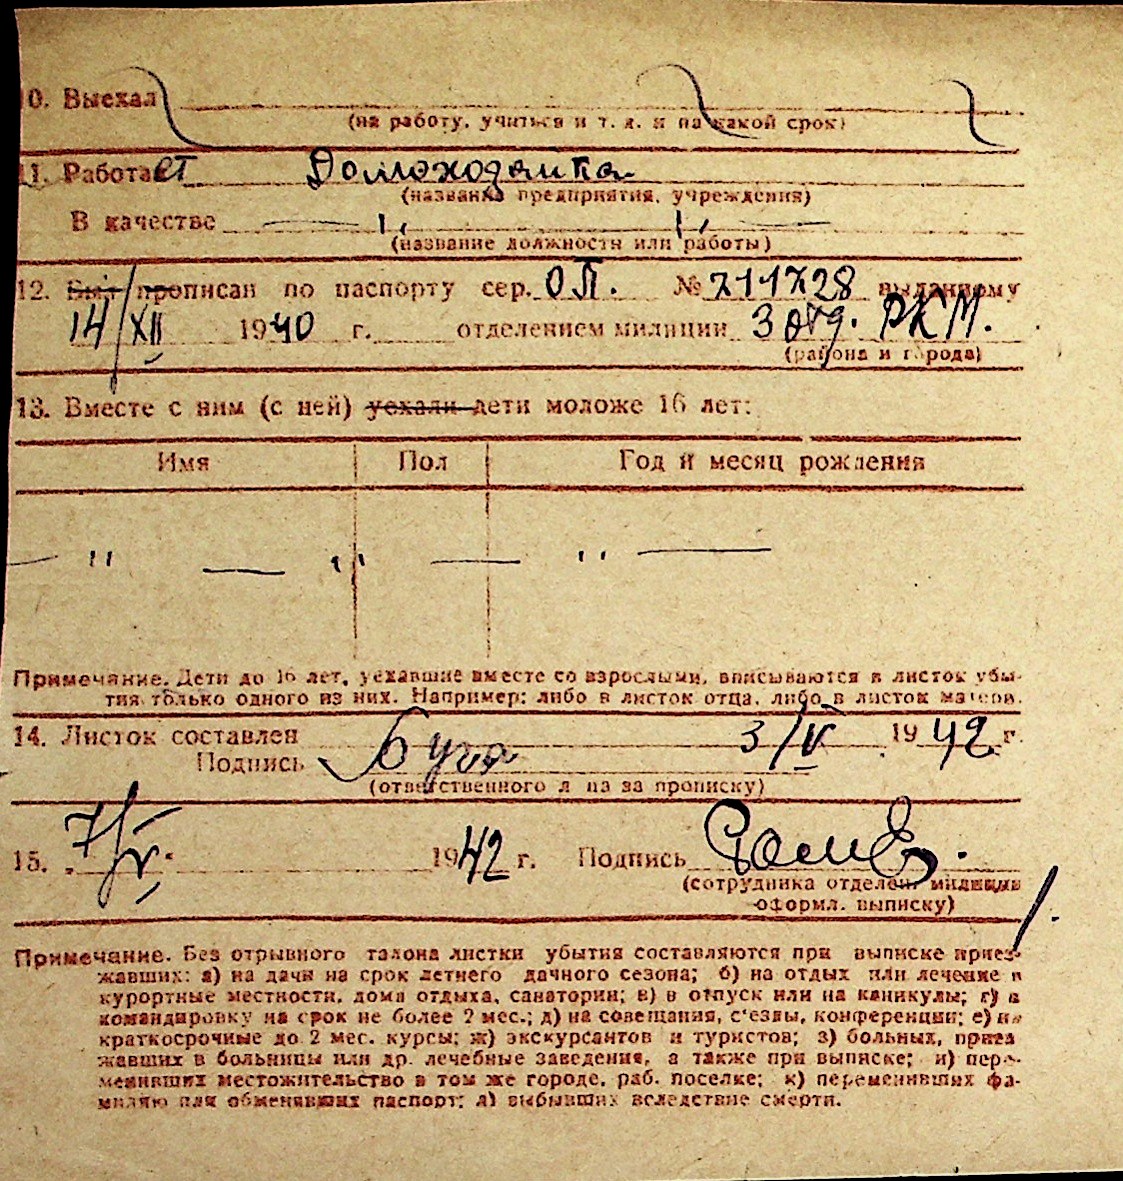 10. Выехал
(на работу, учиться и т. д. и на какой срок)
11. Работает Домохозяйка
(название предприятия, учреждения)
В качестве — " — " —
(название должности или работы)
12. Был прописан по паспорту сер. ОП. № 711728 выданному
14/XII 1940 г. отделением милиции 3 отд. РКМ.
(района и города)
13. Вместе с ним (с ней) уехали дети моложе 16 лет:
Имя Пол Год и месяц рождения
— " — " — " —
Примечание. Дети до 16 лет, уехавшие вместе со взрослыми, вписываются в листок убы-
тия только одного из них. Например: либо в листок отца, либо в листок матери.
14. Листок составлен 3/V 1942 г.
Подпись
(ответственного л па за прописку)
15. 7/V. 1942 г. Подпись
(сотрудника отделен. милиции
оформл. выписку)
Примечание. Без отрывного талона листки убытия составляются при выписке приез-
жавших: а) на дачи на срок летнего дачного сезона; б) на отдых или лечение в
курортные местности, дома отдыха, санатории; в) в отпуск или на каникулы; г) в
командировку на срок не более 2 мес.; д) на совещания, с'езды, конференции; е) на
краткосрочные до 2 мес. курсы; ж) экскурсантов и туристов; з) больных, приез
жавших в больницы или др. лечебные заведения, а также при выписке; и) пере-
менивших местожительство в том же городе, раб. поселке; к) переменивших фа-
милию или обменявших паспорт; л) выбывших вследствие смерти.